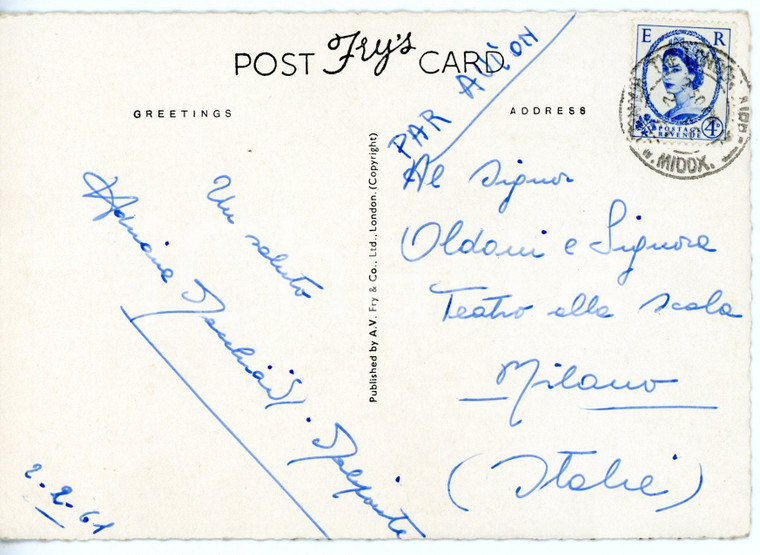 POST Fry's CARD
GREETINGS
ADDRESS
PAR AVION
E R
POSTAGE
REVENUE
4D
MIDDX.
Un saluto
Adriana
2-2-61
Published by A.V. Fry & Co., Ltd., London. (Copyright)
Al Signor
Oldani e Signora
Teatro alla Scala
Milano
(Italie)